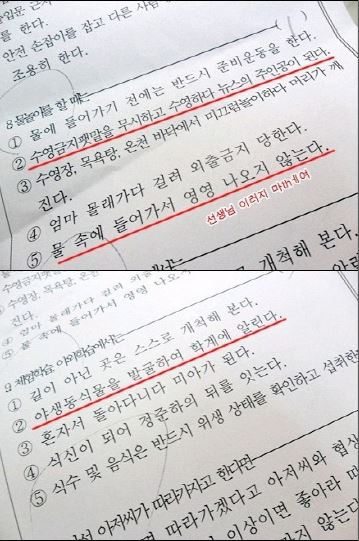 안전 손잡이를 잡고 다른 사람
조용히 한다.
8 물놀이를 할 때는 ( )
① 물에 들어가기 전에는 반드시 준비운동을 한다.
② 수영금지팻말을 무시하고 수영하다 뉴스의 주인공이 된다.
③ 수영장, 목욕탕, 온천 바닥에서 미끄럼놀이하다 머리가 깨
진다.
④ 엄마 몰래가다 걸려 외출금지 당한다.
⑤ 물 속에 들어가서 영영 나오지 않는다.
선생님 이러지
개척해 본다.
수영금지팻말
③ 수영장, 목욕탕, 온
진다.
④ 엄마 몰래가다 걸려
⑤ 물 속에 들어가서 영영 나오
9 체험학습, 야외학습에서는
① 길이 아닌 곳은 스스로 개척해 본다.
② 야생동식물을 발굴하여 학계에 알린다.
③ 혼자서 돌아다니다 미아가 된다.
④ 식신이 되어 정준하의 뒤를 잇는다.
⑤ 식수 및 음식은 반드시 위생 상태를 확인하고 섭취한
아저씨가 따라가자고 한다면
따라가겠다고 아저씨와 협상
이상이면 좋아라 따
않는